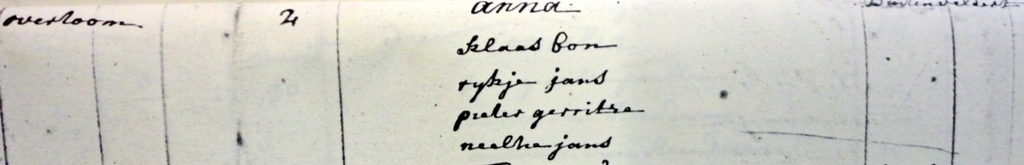 anna
overtoom 2
klaas bon
rykje jans
pieter gerritze
neeltie jans